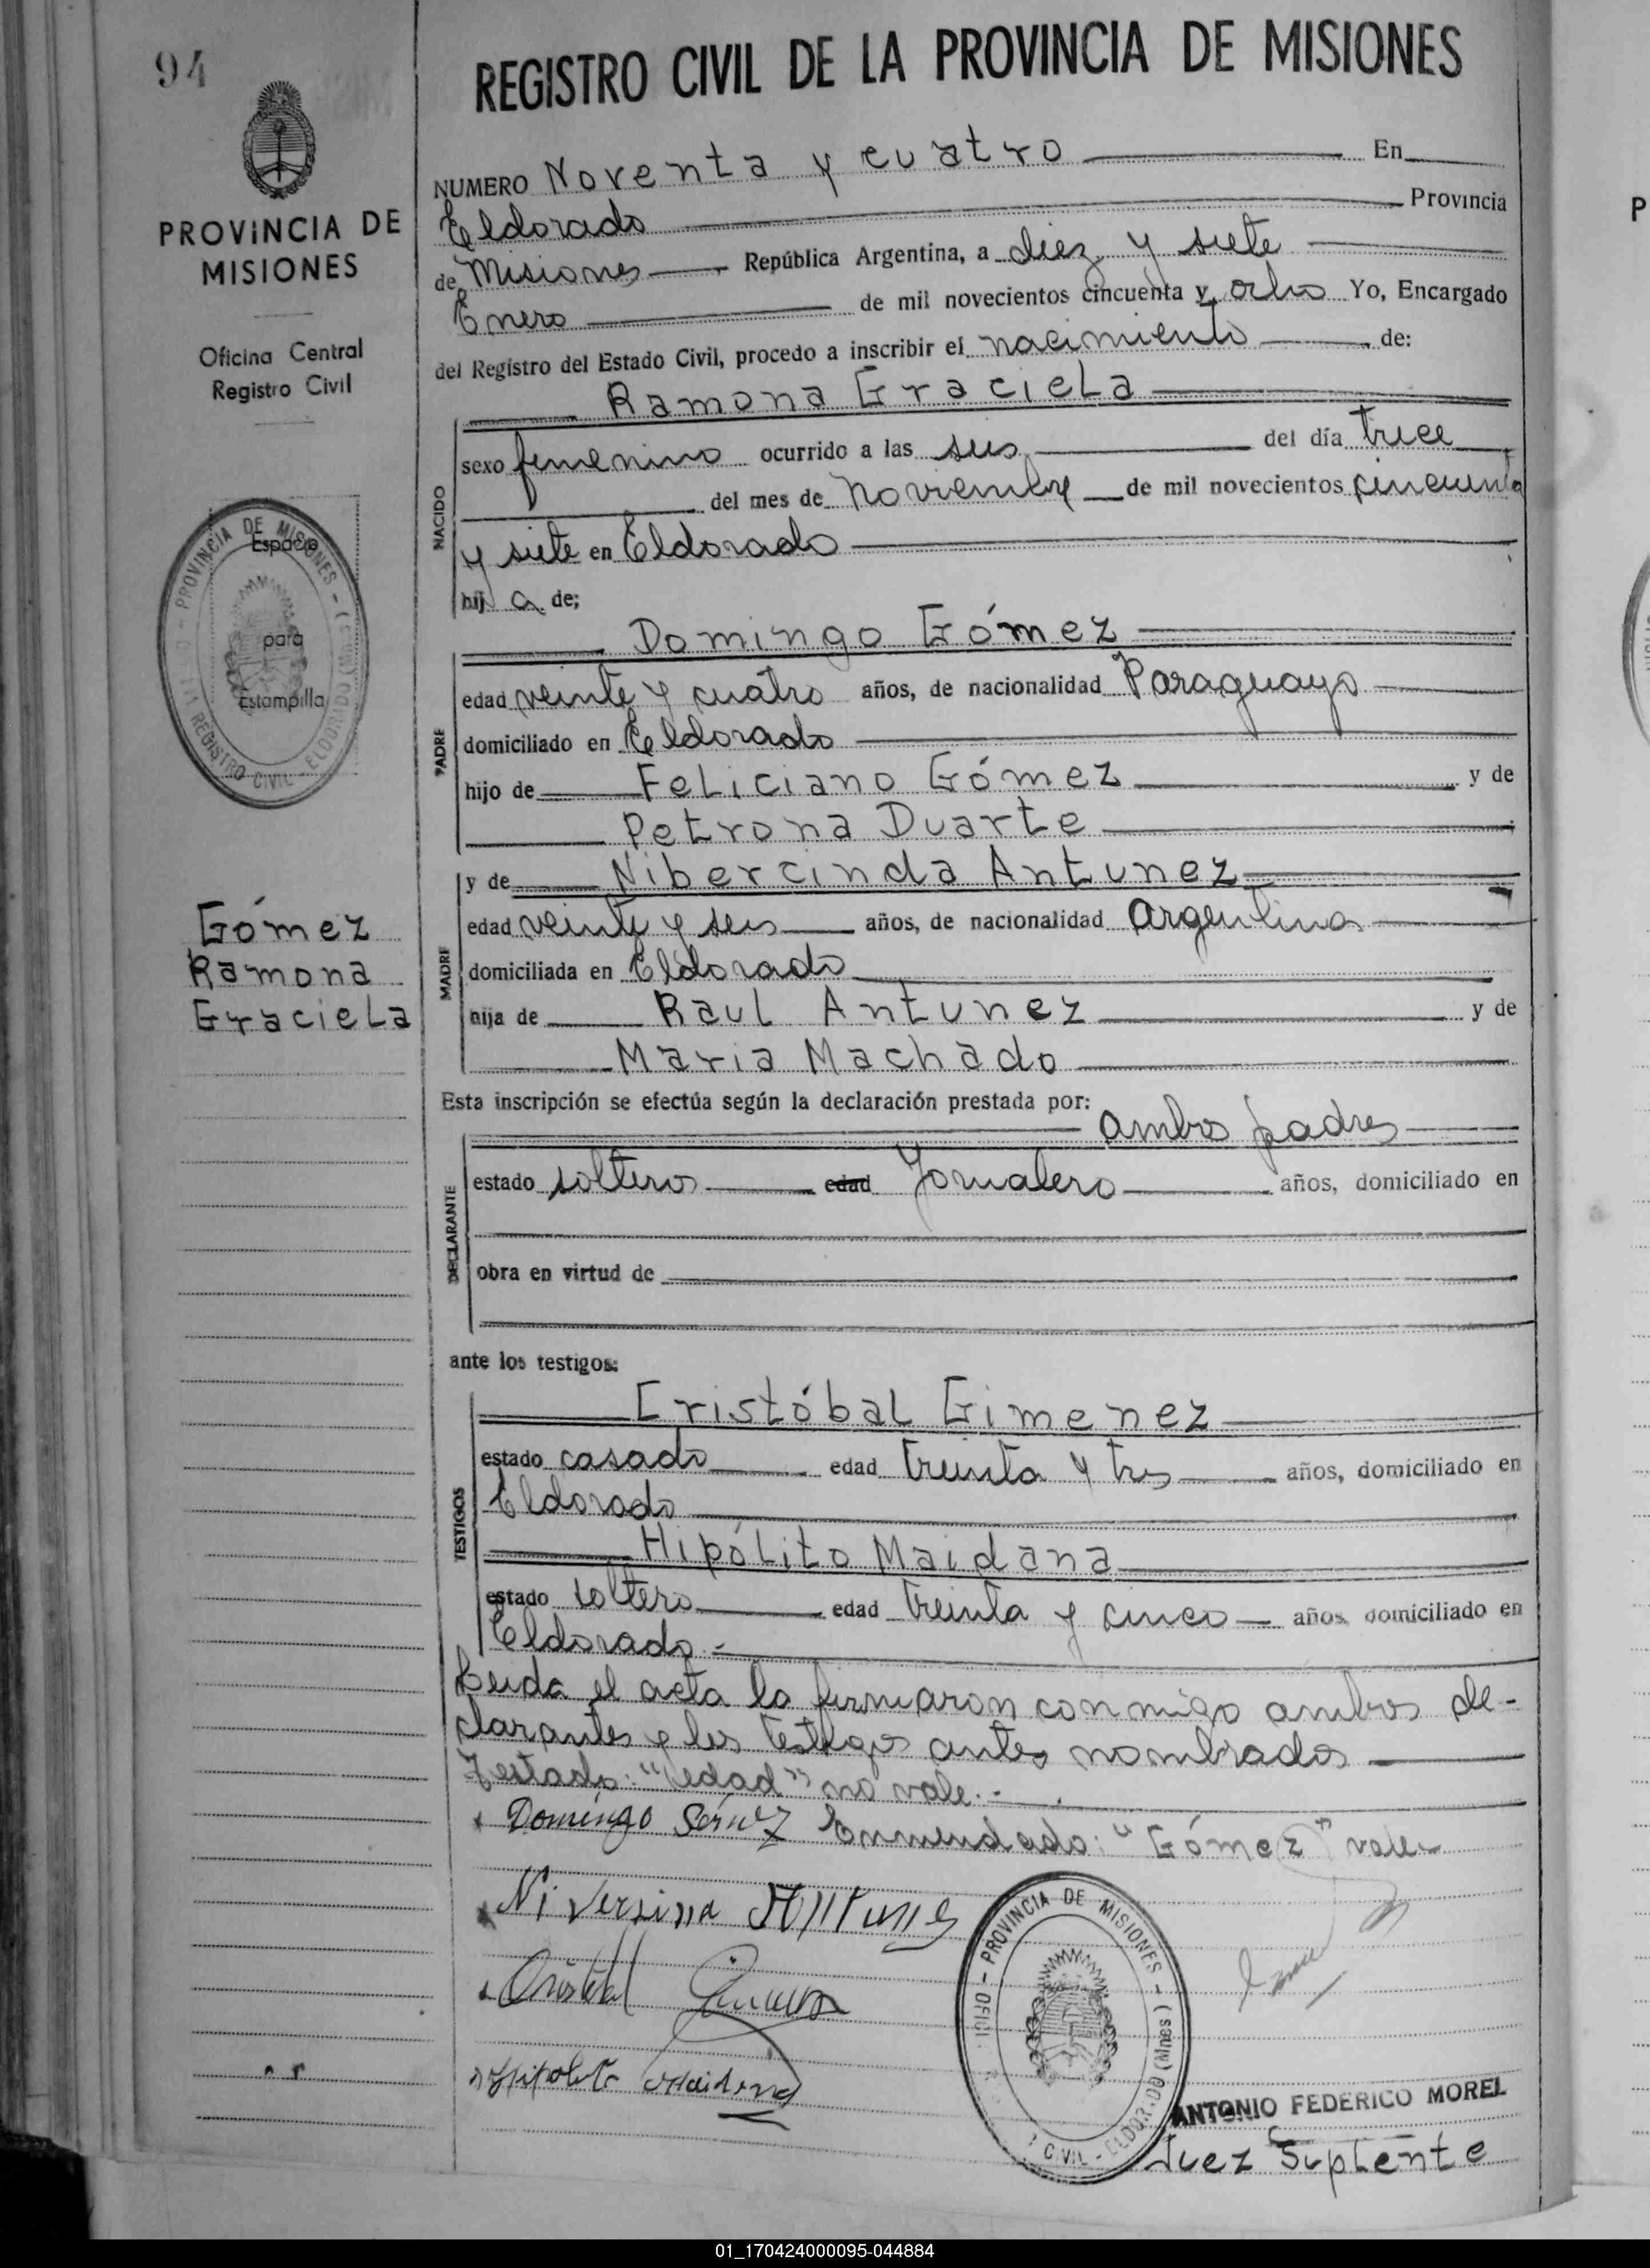 94
REGISTRO CIVIL DE LA PROVINCIA DE MISIONES
PROVINCIA DE
MISIONES
Oficina Central
Registro Civil
NUMERO Noventa y cuatro En
Eldorado Provincia
de Misiones República Argentina, a diez y siete
Enero de mil novecientos cincuenta y ocho Yo, Encargado
del Registro del Estado Civil, procedo a inscribir el nacimiento de:
Ramona Graciela
NACIDO
sexo femenino ocurrido a las seis del día trece
del mes de Noviembre de mil novecientos cincuenta
y siete en Eldorado
hija de;
PROVINCIA DE MISIONES
REGISTRO CIVIL - ELDORADO
Espacio
para
Estampilla
Domingo Gómez
PADRE
edad veinte y cuatro años, de nacionalidad Paraguayo
domiciliado en Eldorado
hijo de Feliciano Gómez y de
Petrona Duarte
MADRE
y de Nibercinda Antunez
edad veinte y seis años, de nacionalidad argentina
domiciliada en Eldorado
hija de Raul Antunez y de
Maria Machado
Gómez
Ramona
Graciela
Esta inscripción se efectúa según la declaración prestada por:
ambos padres
DECLARANTE
estado solteros edad Jornalero años, domiciliado en
obra en virtud de
ante los testigos:
TESTIGOS
Cristóbal Gimenez
estado casado edad treinta y tres años, domiciliado en
Eldorado
Hipólito Maidana
estado soltero edad treinta y cinco años domiciliado en
Eldorado.-
Leida el acta la firmaron conmigo ambos de-
clarantes y los testigos antes nombrados
Testado: "edad" no vale.-
Domingo Enmendado: "Gómez" vale
Niversina Antunes
Cristobal
Hipolito Maidana
PROVINCIA DE MISIONES
CIVIL - ELDORADO (Mnes)
ANTONIO FEDERICO MOREL
Juez Suplente
01_170424000095-044884